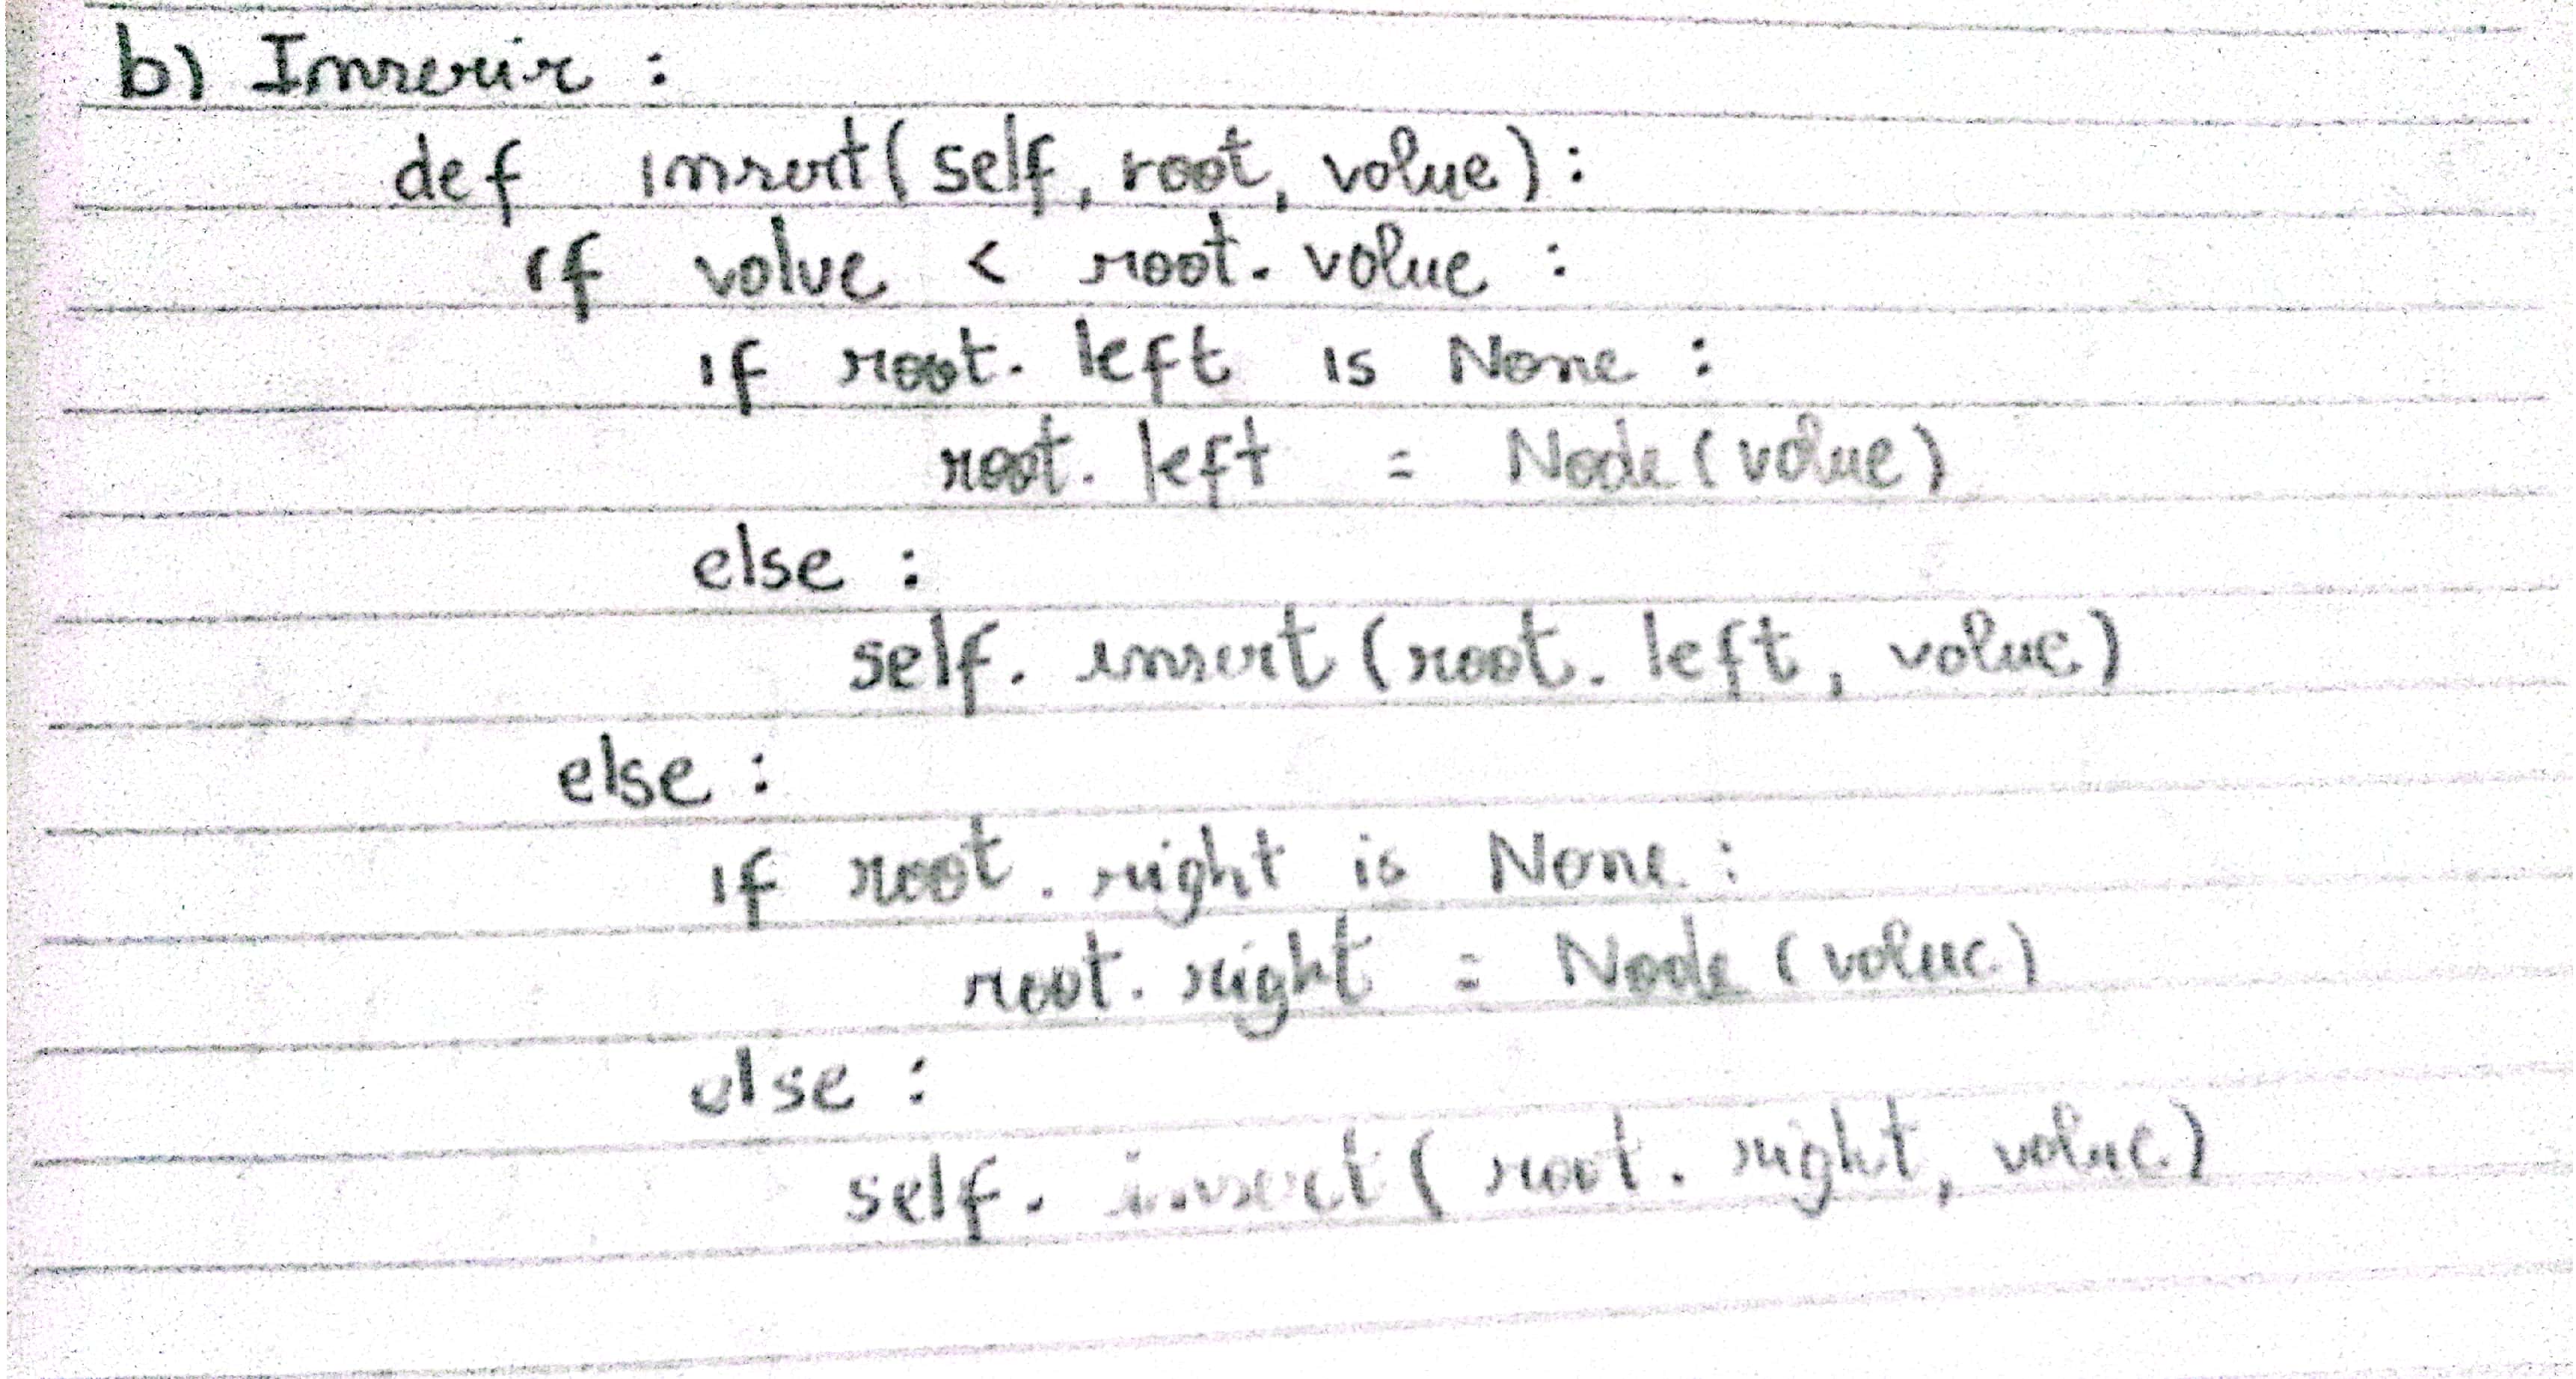 b) Inserir :
def insert(self, root, value):
if value < root. value :
if root. left is None :
root. left = Node (value)
else :
self. insert (root. left, value)
else :
if root. right is None :
root. right = Node (value)
else :
self. insert ( root. right, value)